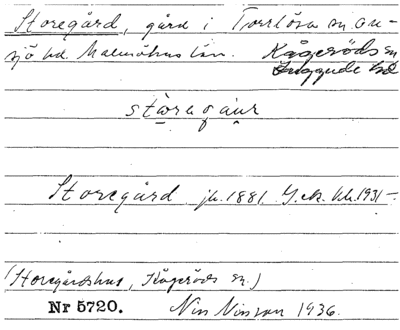 Storegård, gård i Torrlösa sn On-
sjö hd. Malmöhus län. Kågeröds sn
Luggude hd
Storegård jb. 1881. G.ek. bl. 1931 -
(Storegårdshus, Kågeröds sn.)
Nr 5720. Nils Nilsson 1936.